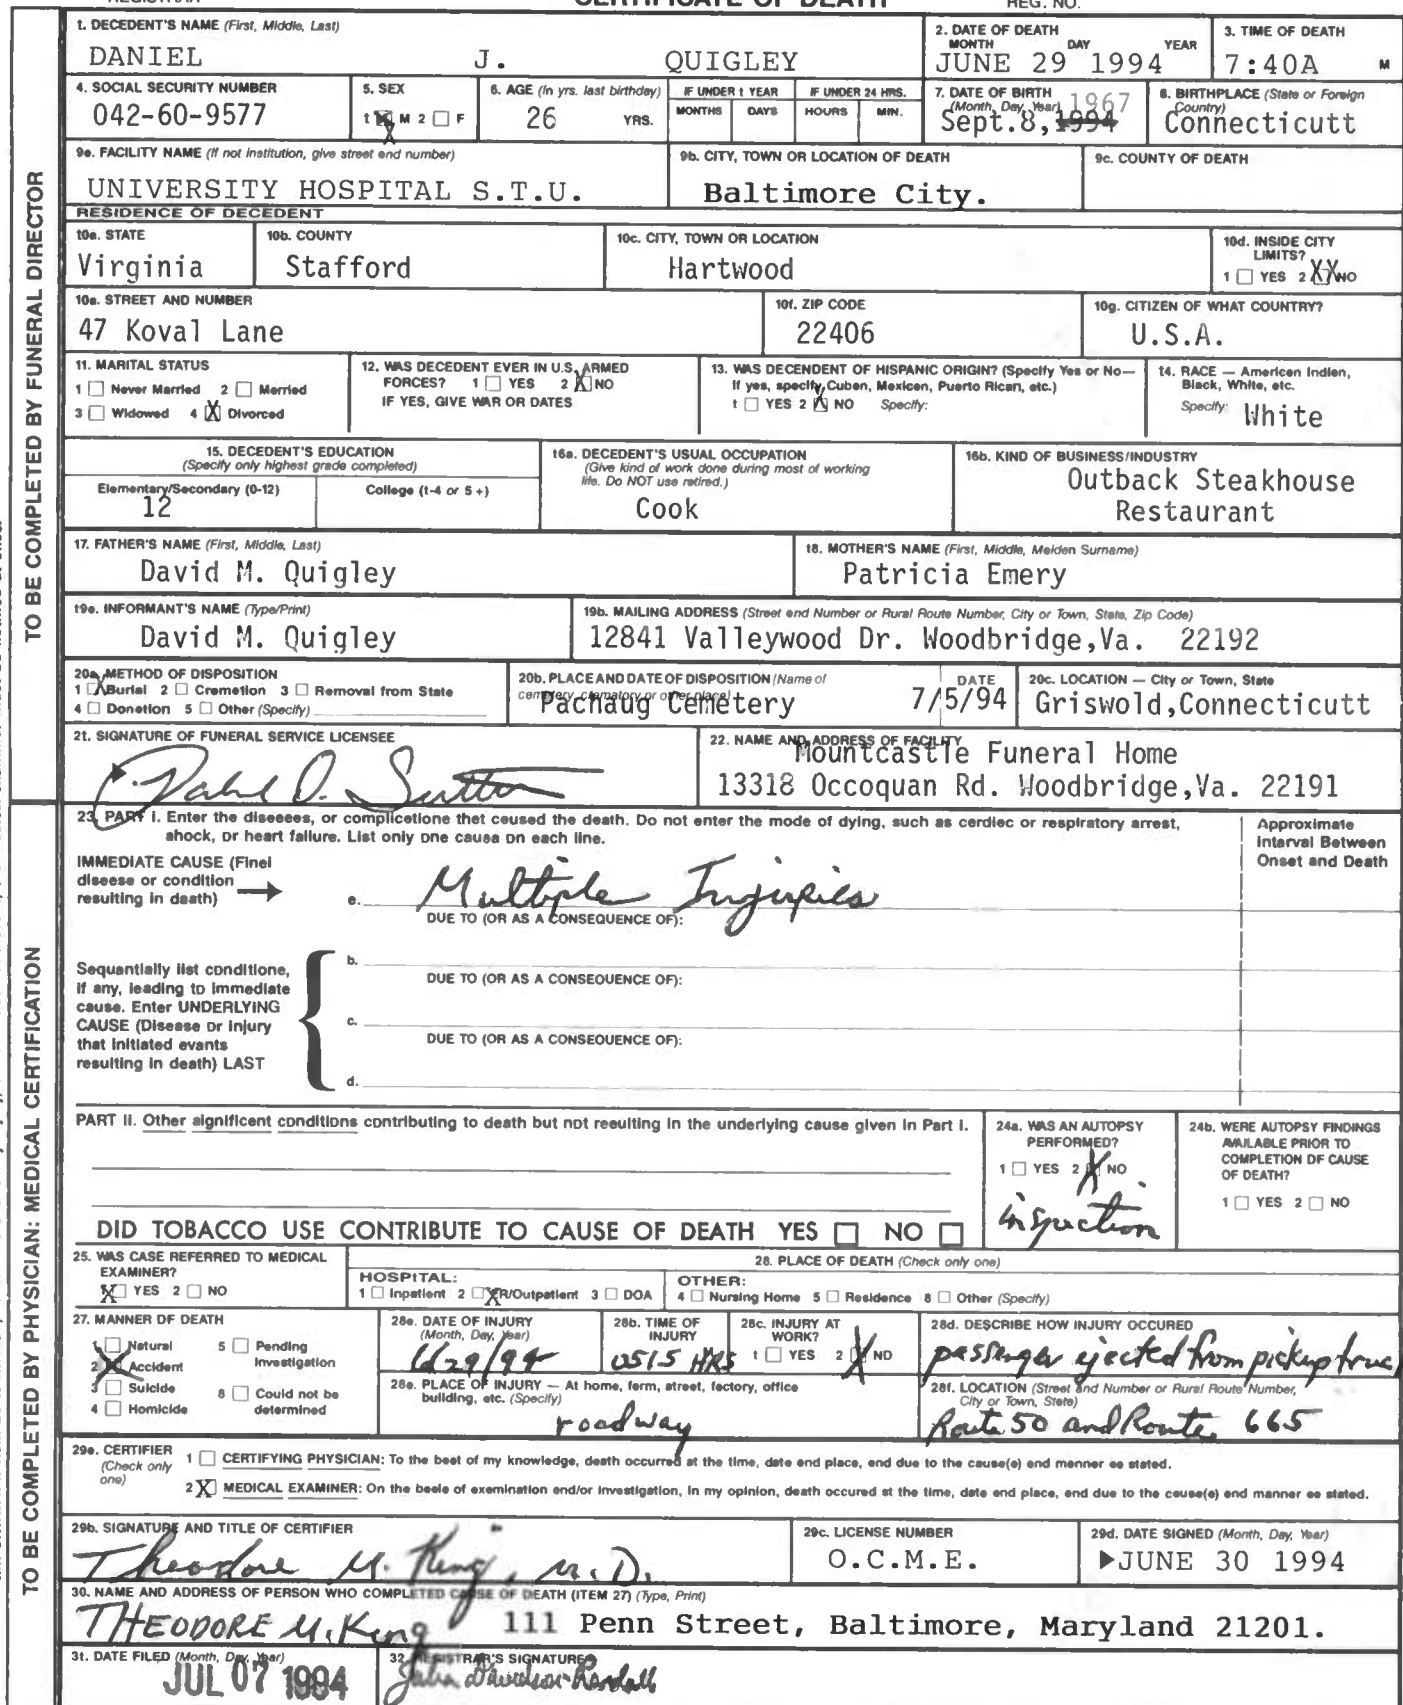 CERTIFICATE OF DEATH
REG. NO.
1. DECEDENT'S NAME (First, Middle, Last)
DANIEL J. QUIGLEY
2. DATE OF DEATH
MONTH DAY YEAR
JUNE 29 1994
3. TIME OF DEATH
7:40A M
4. SOCIAL SECURITY NUMBER
042-60-9577
5. SEX
1 X M 2 F
6. AGE (In yrs. last birthday)
26 YRS.
IF UNDER 1 YEAR
MONTHS DAYS
IF UNDER 24 HRS.
HOURS MIN.
7. DATE OF BIRTH
(Month, Day, Year) 1967
Sept.8, 1994
8. BIRTHPLACE (State or Foreign
Country)
Connecticutt
9a. FACILITY NAME (If not institution, give street and number)
UNIVERSITY HOSPITAL S.T.U.
9b. CITY, TOWN OR LOCATION OF DEATH
Baltimore City.
9c. COUNTY OF DEATH
RESIDENCE OF DECEDENT
10a. STATE
Virginia
10b. COUNTY
Stafford
10c. CITY, TOWN OR LOCATION
Hartwood
10d. INSIDE CITY
LIMITS?
1 YES 2 XX NO
10e. STREET AND NUMBER
47 Koval Lane
10f. ZIP CODE
22406
10g. CITIZEN OF WHAT COUNTRY?
U.S.A.
11. MARITAL STATUS
1 Never Married 2 Married
3 Widowed 4 X Divorced
12. WAS DECEDENT EVER IN U.S. ARMED
FORCES? 1 YES 2 X NO
IF YES, GIVE WAR OR DATES
13. WAS DECENDENT OF HISPANIC ORIGIN? (Specify Yes or No—
If yes, specify Cuban, Mexican, Puerto Rican, etc.)
1 YES 2 X NO Specify:
14. RACE — American Indian,
Black, White, etc.
Specify: White
15. DECEDENT'S EDUCATION
(Specify only highest grade completed)
Elementary/Secondary (0-12)
12
College (1-4 or 5+)
16a. DECEDENT'S USUAL OCCUPATION
(Give kind of work done during most of working
life. Do NOT use retired.)
Cook
16b. KIND OF BUSINESS/INDUSTRY
Outback Steakhouse
Restaurant
17. FATHER'S NAME (First, Middle, Last)
David M. Quigley
18. MOTHER'S NAME (First, Middle, Maiden Surname)
Patricia Emery
19a. INFORMANT'S NAME (Type/Print)
David M. Quigley
19b. MAILING ADDRESS (Street and Number or Rural Route Number, City or Town, State, Zip Code)
12841 Valleywood Dr. Woodbridge,Va. 22192
20a. METHOD OF DISPOSITION
1 X Burial 2 Cremation 3 Removal from State
4 Donation 5 Other (Specify)
20b. PLACE AND DATE OF DISPOSITION (Name of
cemetery, crematory or other place)
Pachaug Cemetery
DATE
7/5/94
20c. LOCATION — City or Town, State
Griswold,Connecticutt
21. SIGNATURE OF FUNERAL SERVICE LICENSEE
22. NAME AND ADDRESS OF FACILITY
Mountcastle Funeral Home
13318 Occoquan Rd. Woodbridge,Va. 22191
TO BE COMPLETED BY FUNERAL DIRECTOR
23. PART I. Enter the diseases, or complications that caused the death. Do not enter the mode of dying, such as cardiac or respiratory arrest,
shock, or heart failure. List only one cause on each line.
Approximate
Interval Between
Onset and Death
IMMEDIATE CAUSE (Final
disease or condition
resulting in death)
a. Multiple Injuries
DUE TO (OR AS A CONSEQUENCE OF):
Sequentially list conditions,
if any, leading to immediate
cause. Enter UNDERLYING
CAUSE (Disease or injury
that initiated events
resulting in death) LAST
b.
DUE TO (OR AS A CONSEQUENCE OF):
c.
DUE TO (OR AS A CONSEQUENCE OF):
d.
PART II. Other significant conditions contributing to death but not resulting in the underlying cause given in Part I.
24a. WAS AN AUTOPSY
PERFORMED?
1 YES 2 X NO
inspection
24b. WERE AUTOPSY FINDINGS
AVAILABLE PRIOR TO
COMPLETION OF CAUSE
OF DEATH?
1 YES 2 NO
DID TOBACCO USE CONTRIBUTE TO CAUSE OF DEATH YES NO
25. WAS CASE REFERRED TO MEDICAL
EXAMINER?
X YES 2 NO
26. PLACE OF DEATH (Check only one)
HOSPITAL:
1 Inpatient 2 X ER/Outpatient 3 DOA
OTHER:
4 Nursing Home 5 Residence 6 Other (Specify)
27. MANNER OF DEATH
1 Natural 5 Pending
Investigation
2 X Accident
3 Suicide 6 Could not be
determined
4 Homicide
28a. DATE OF INJURY
(Month, Day, Year)
6/29/94
28b. TIME OF
INJURY
0515 HRS
28c. INJURY AT
WORK?
1 YES 2 X NO
28d. DESCRIBE HOW INJURY OCCURED
passenger ejected from pickup truc
28e. PLACE OF INJURY — At home, farm, street, factory, office
building, etc. (Specify)
roadway
28f. LOCATION (Street and Number or Rural Route Number,
City or Town, State)
Route 50 and Route 665
29a. CERTIFIER
(Check only
one)
1 CERTIFYING PHYSICIAN: To the best of my knowledge, death occurred at the time, date and place, and due to the cause(s) and manner as stated.
2 X MEDICAL EXAMINER: On the basis of examination and/or investigation, in my opinion, death occured at the time, date and place, and due to the cause(s) and manner as stated.
29b. SIGNATURE AND TITLE OF CERTIFIER
Theodore M. King, M.D.
29c. LICENSE NUMBER
O.C.M.E.
29d. DATE SIGNED (Month, Day, Year)
JUNE 30 1994
30. NAME AND ADDRESS OF PERSON WHO COMPLETED CAUSE OF DEATH (ITEM 27) (Type, Print)
THEODORE M. King 111 Penn Street, Baltimore, Maryland 21201.
31. DATE FILED (Month, Day, Year)
JUL 07 1994
32. REGISTRAR'S SIGNATURE
Julia Davidson-Randall
TO BE COMPLETED BY PHYSICIAN: MEDICAL CERTIFICATION